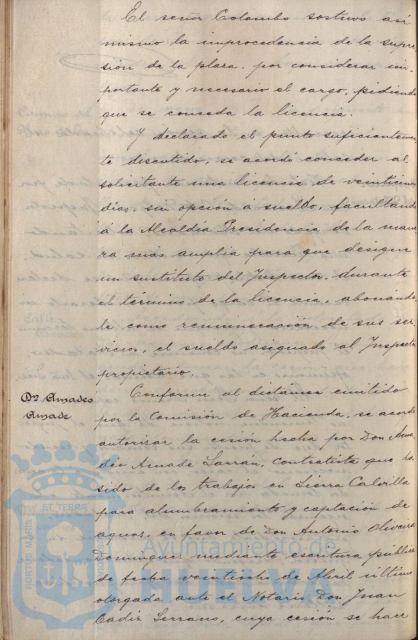 El señor Colombo sostuvo asi
mismo la improcedencia de la supre
sión de la plaza, por considerar im-
portante y necesario el cargo, pidiendo
que se conceda la licencia.
Y declarado el punto suficientemen
te discutido, se acordó conceder al
solicitante una licencia de veinticinco
dias, sin opción a sueldo, facultando
á la Alcaldia Presidencia de la mane
ra más amplia para que designe
un sustituto del Inspector, durante
el término de la licencia, abonándo
le como remuneración de sus ser
vicios, el sueldo asignado al Inspector
propietario.
Dn Amadeo
Amade
Conforme al dictámen emitido
por la Comisión de Hacienda, se acordó
autorizar la cesión hecha por Don Ama
deo Amade Larrán, contratista que ha
sido de los trabajos en Sierra Calvilla
para alumbramiento y captación de
aguas, en favor de Don Antonio Oliveira
Dominguez mediante escritura pública
de fecha veintiocho de Abril último
otorgada ante el Notario Don Juan
Cádiz Serrano, cuya cesión se hace
Ayuntamiento de
HUELVA